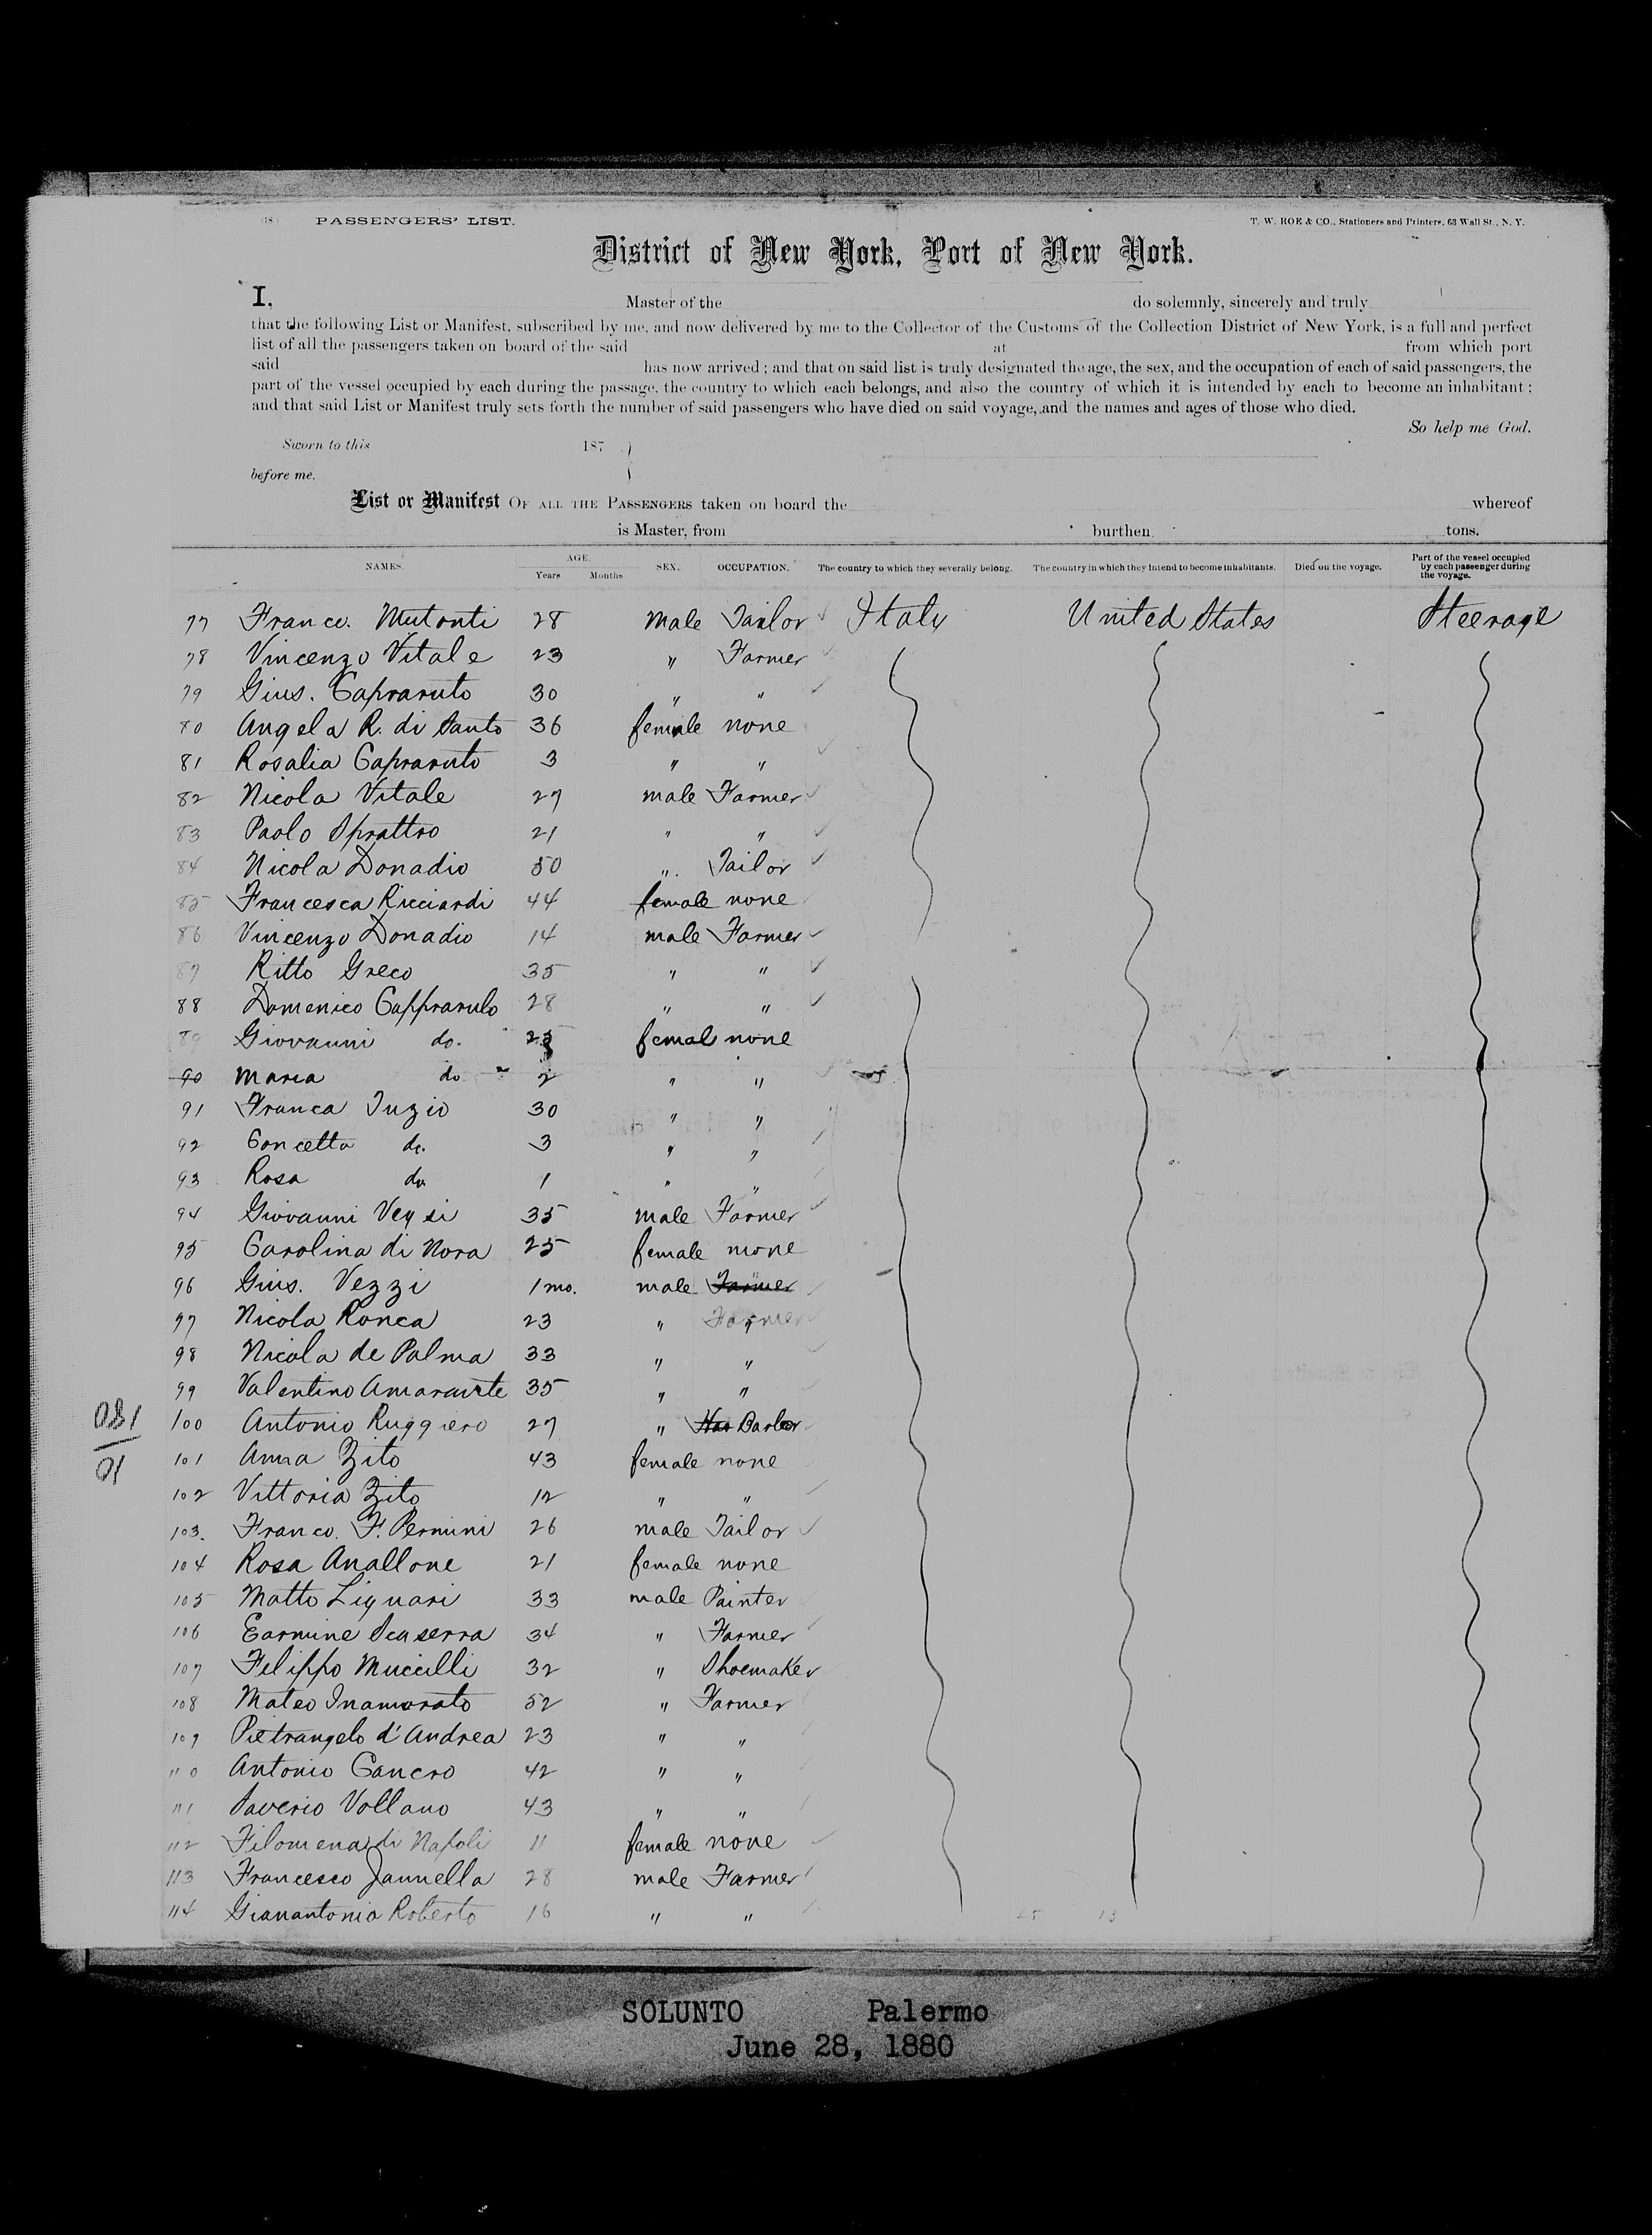 (18) PASSENGERS' LIST. T. W. ROE & CO., Stationers and Printers, 63 Wall St., N. Y.
District of New York, Port of New York.
I, Master of the do solemnly, sincerely and truly
that the following List or Manifest, subscribed by me, and now delivered by me to the Collector of the Customs of the Collection District of New York, is a full and perfect
list of all the passengers taken on board of the said at from which port
said has now arrived; and that on said list is truly designated the age, the sex, and the occupation of each of said passengers, the
part of the vessel occupied by each during the passage, the country to which each belongs, and also the country of which it is intended by each to become an inhabitant;
and that said List or Manifest truly sets forth the number of said passengers who have died on said voyage, and the names and ages of those who died.
So help me God.
Sworn to this 187
before me.
List or Manifest OF ALL THE PASSENGERS taken on board the whereof
is Master, from burthen tons.
NAMES. AGE. Years Months SEX. OCCUPATION. The country to which they severally belong. The country in which they intend to become inhabitants. Died on the voyage. Part of the vessel occupied by each passenger during the voyage.
77 Franco. Mutonti 28 male Tailor Italy United States Steerage
78 Vincenzo Vitale 23 " Farmer
79 Gius. Capraruto 30 " "
80 Angela R. di Santo 36 female none
81 Rosalia Capraruto 3 " "
82 Nicola Vitale 27 male Farmer
83 Paolo Sprattro 21 " "
84 Nicola Donadio 50 " Tailor
85 Francesca Ricciardi 44 female none
86 Vincenzo Donadio 14 male Farmer
87 Ritto Greco 35 " "
88 Domenico Cappraruls 28 " "
89 Giovanni do. 25 femal none
90 Maria do 2 " "
91 Franca Tuzio 30 " "
92 Concetta do. 3 " "
93 Rosa do 1 " "
94 Giovanni 35 male Farmer
95 Carolina di Nora 25 female none
96 Gius. Vezzi 1 mo. male Farmer
97 Nicola Ronca 23 " Farmer
98 Nicola de Palma 33 " "
99 Valentino 35 " "
100 Antonio Ruggiero 27 " Barber
101 Anna Zito 43 female none
102 Vittoria Zito 12 " "
103. Franco. F. Pernini 26 male Tailor
104 Rosa Anallone 21 female none
105 Matto Liguari 33 male Painter
106 Carmine 34 " Farmer
107 Filippo Muccilli 32 " Shoemaker
108 Mateo Inamorato 52 " Farmer
109 Pietrangelo d'Andrea 23 " "
110 Antonio Cancro 42 " "
111 Saverio Vollano 43 " "
112 Filomena di Napoli 11 female none
113 Francesco Jannella 28 male Farmer
114 Gianantonio Roberto 16 " "
180
10
SOLUNTO Palermo
June 28, 1880